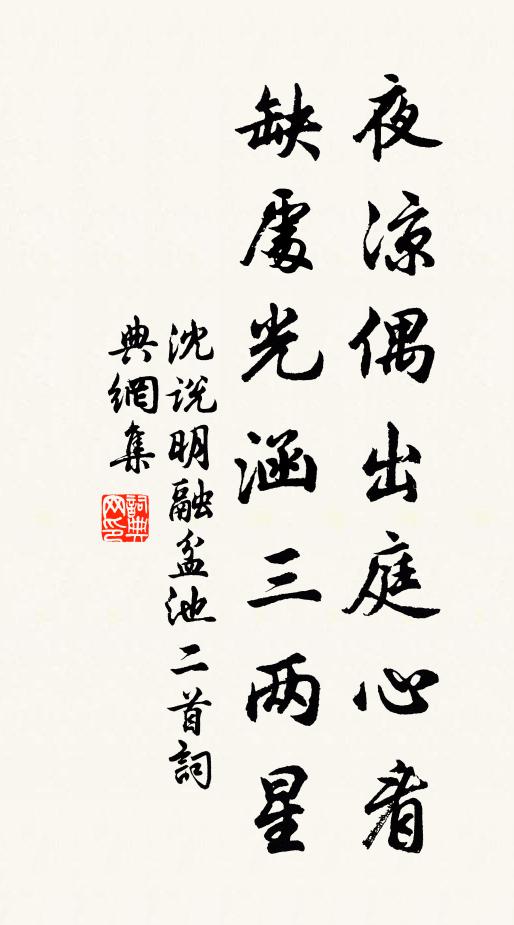 夜凉偶出庭心看
缺處光涵三两星
沈說明融盆池二首詞
典網集
詞典
网印